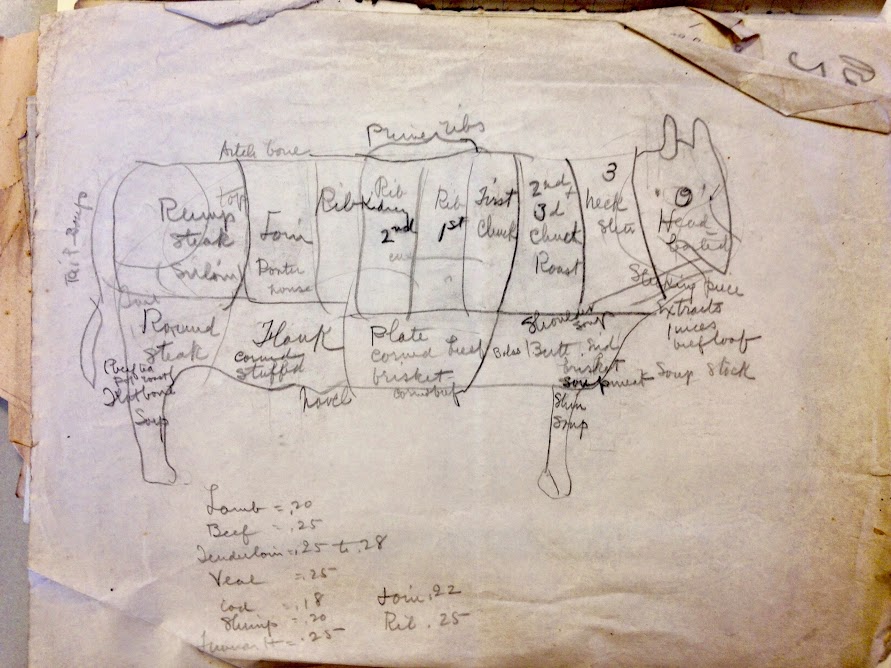 Prime ribs
Aitch bone
Tail soup
Rump
Steak
(Sirloin)
top
Loin
Porter
house
Rib
Rib
Kidney
2nd
Rib
1st
First
Chuck
2nd +
3d
Chuck
Roast
3
neck
"O"
Head
Sticking piece
Extracts
juices
beefloaf
Soup Stock
Round
Steak
Pot roast
Soup
Flank
corned
stuffed
navel
Plate
corned beef
brisket
corned beef
Shoulder
Soup
Butt
brisket
soupmeat
Shin
Soup
Lamb = .20
Beef = .25
Tenderloin = .25 to .28
Veal = .25
Cod = .18
Shrimp = .20
= .25
Loin .22
Rib .25